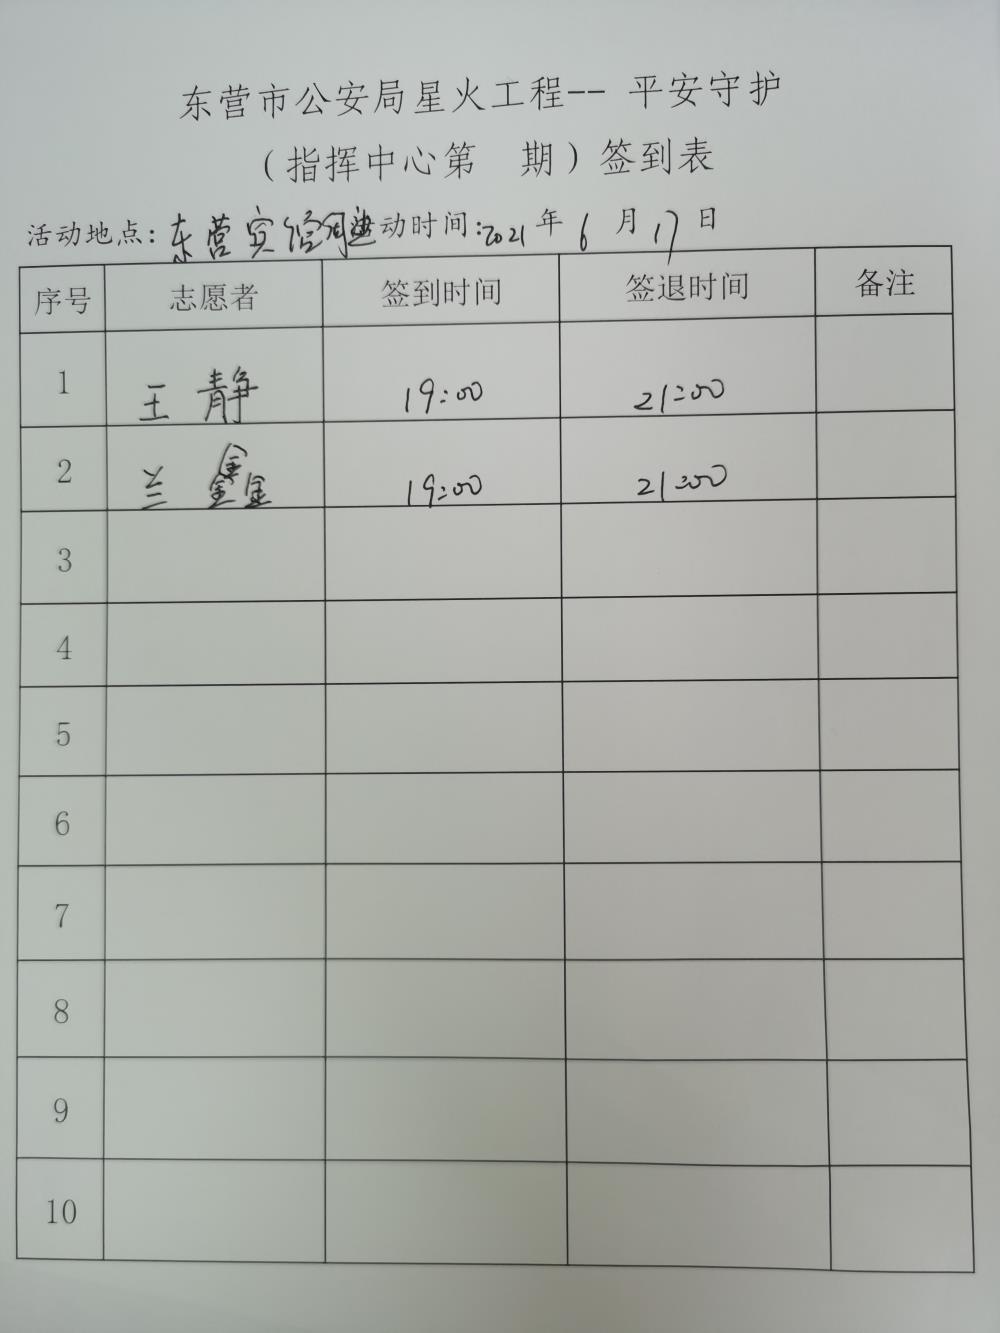 东营市公安局星火工程-- 平安守护
（指挥中心第 期）签到表
活动地点：东营宾馆周边 动时间：2021年6月17日
序号 志愿者 签到时间 签退时间 备注
1 王静 19:00 21:00
2 兰鑫 19:00 21:00
3
4
5
6
7
8
9
10